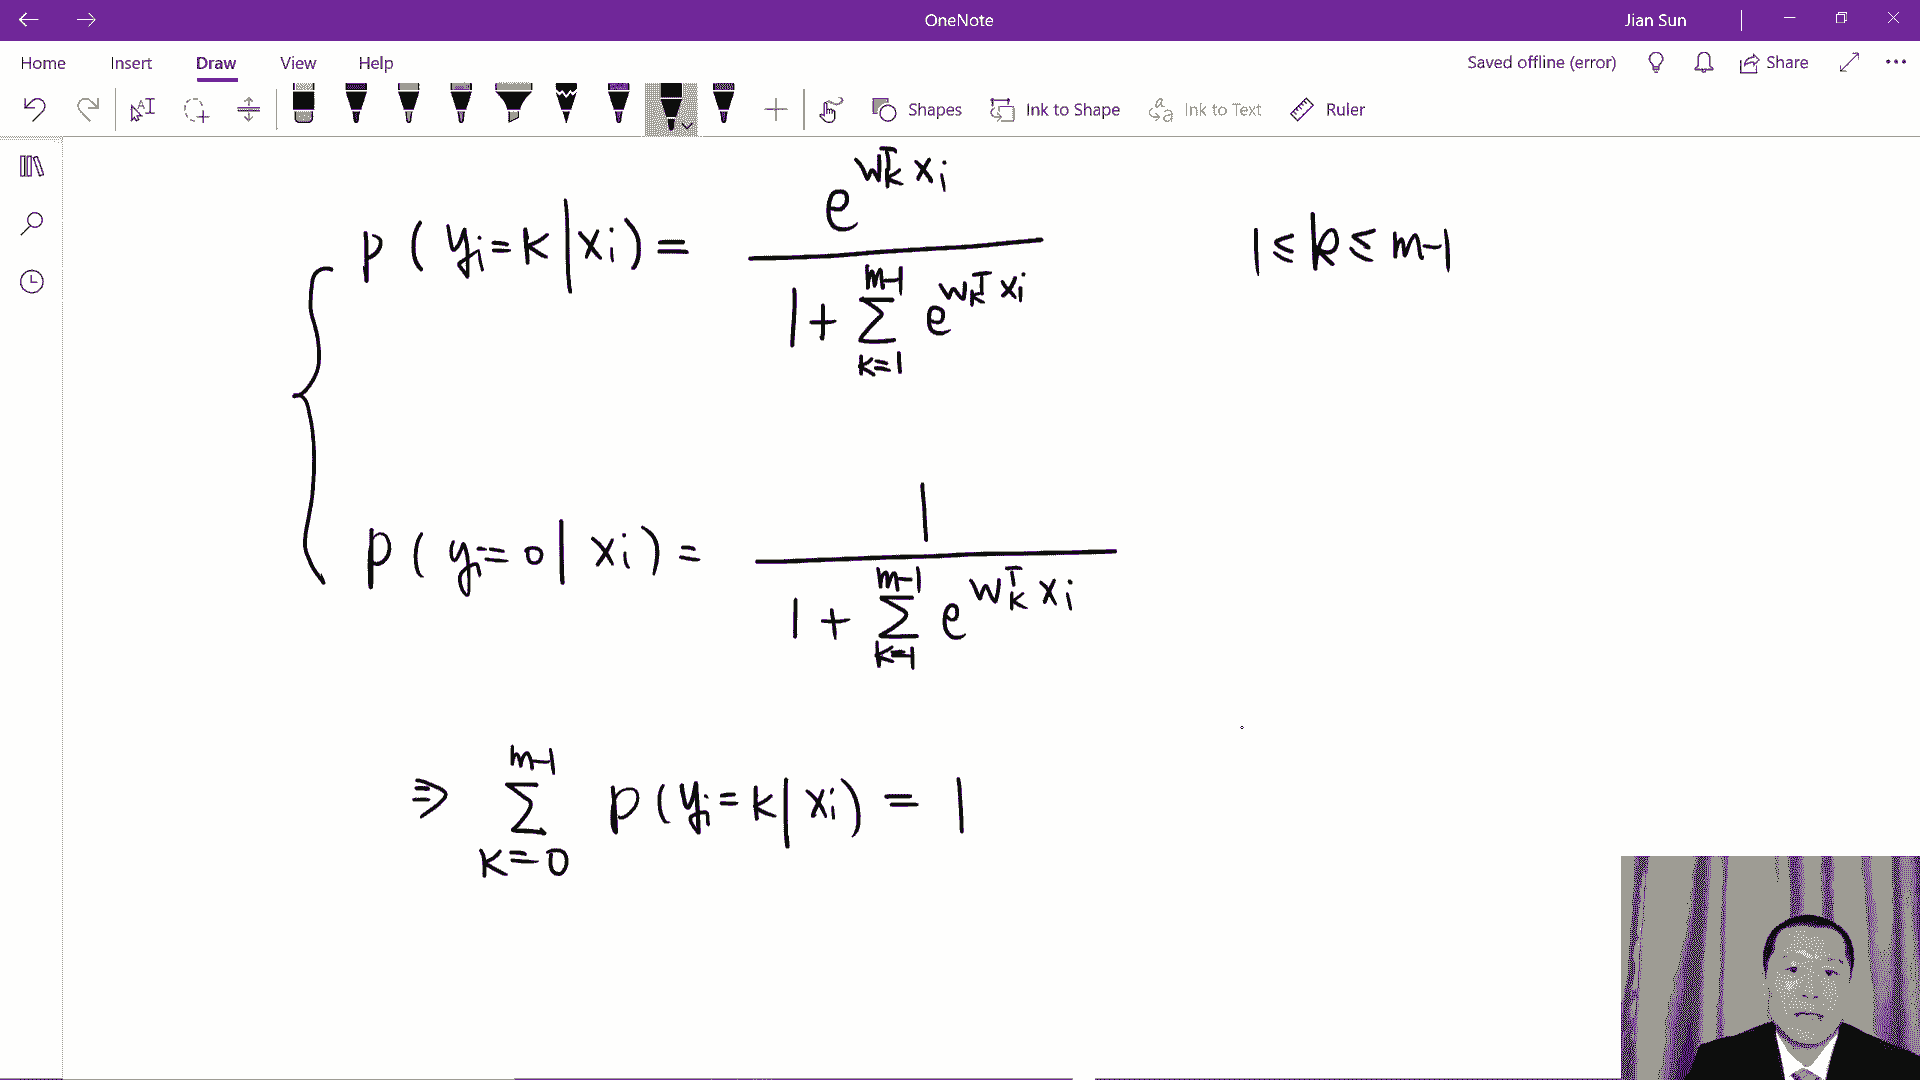 OneNote
Jian Sun
Home Insert Draw View Help
Saved offline (error) Share
Shapes Ink to Shape Ink to Text Ruler
p(y_i=k|x_i) = \frac{e^{w_k^T x_i}}{1+\sum_{k=1}^{m-1} e^{w_k^T x_i}} 1≤k≤m-1
p(y_i=0|x_i) = \frac{1}{1+\sum_{k=1}^{m-1} e^{w_k^T x_i}}
⇒ \sum_{k=0}^{m-1} p(y_i=k|x_i) = 1